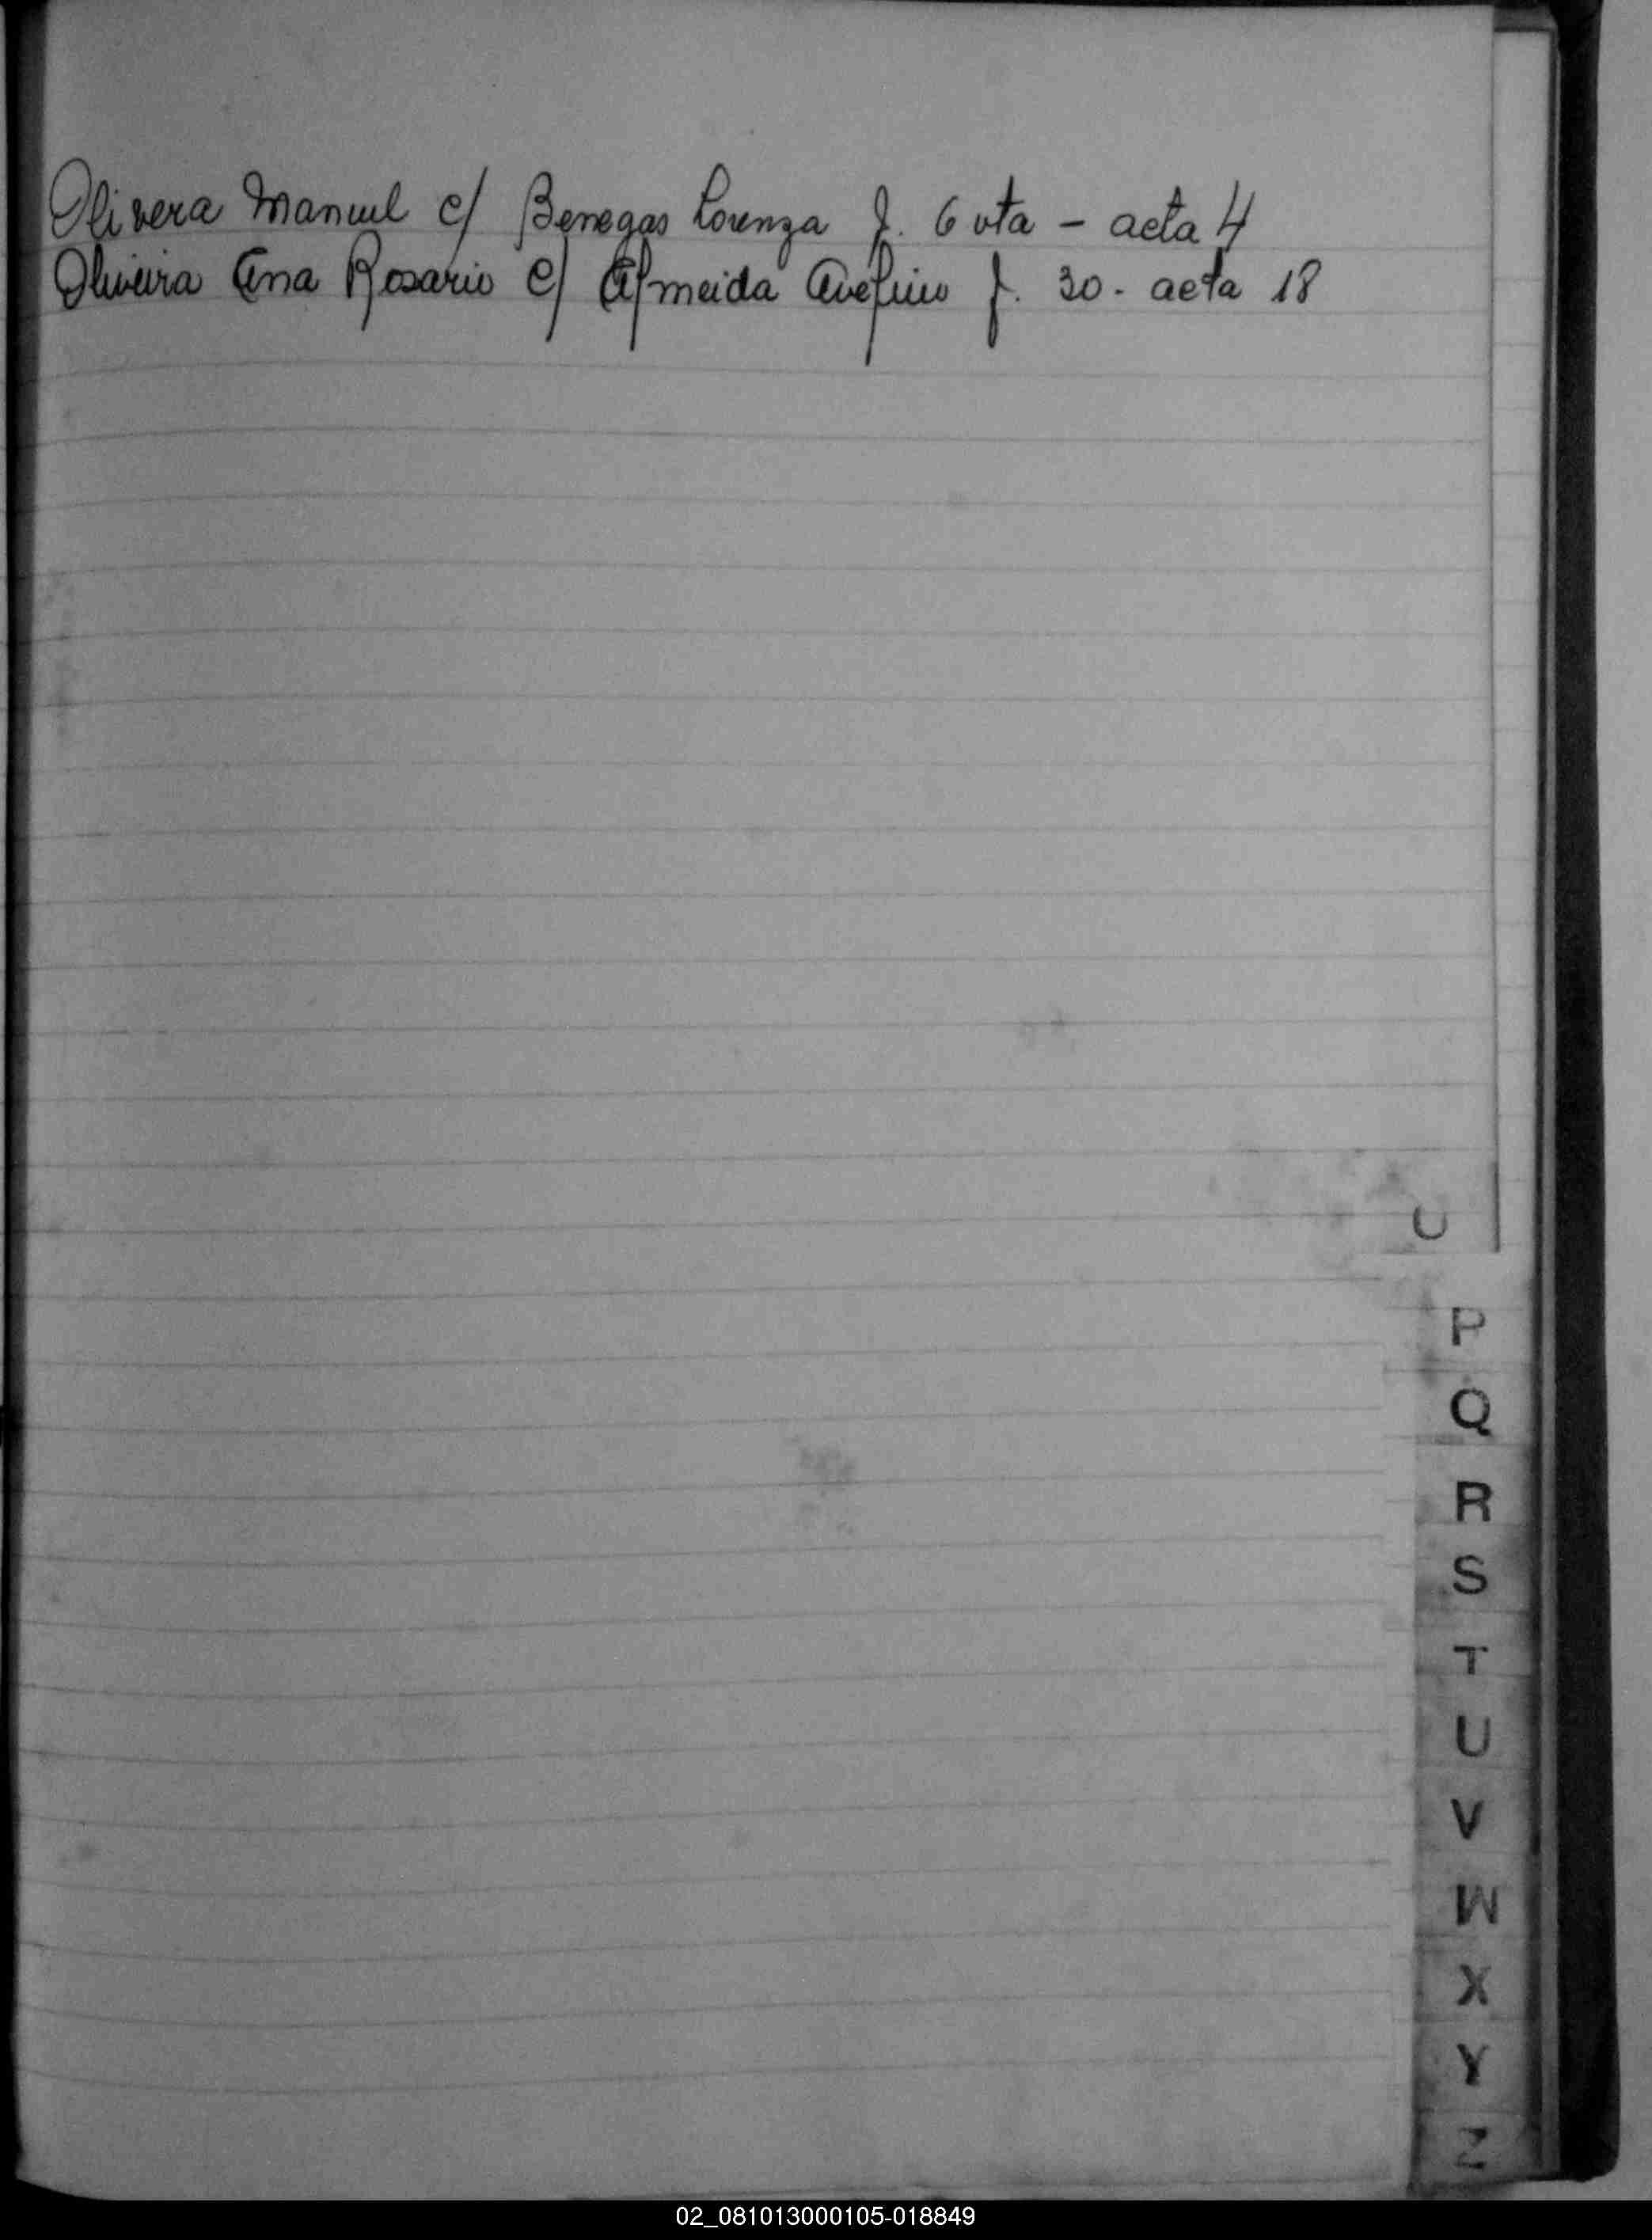 Olivera Manuel c/ Benegas Lorenza f. 6 vta - acta 4
Oliveira Ana Rosario c/ Almeida Avelino f. 30 - acta 18
P
Q
R
S
T
U
V
W
X
Y
Z
02_081013000105-018849